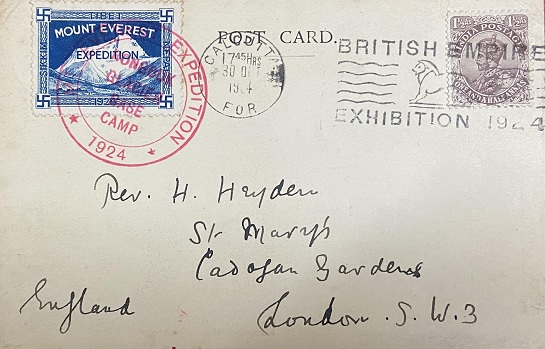 TIBET
MOUNT EVEREST
EXPEDITION
1924
EXPEDITION
RONGBUK
GLACIER
BASE
CAMP
★ 1924 ★
POST CARD.
CALCUTTA
17 45 HRS
30 OCT
1924
FOR.
BRITISH EMPIRE
EXHIBITION 1924
INDIA POSTAGE
Rev. H. Heyden
St Mary's
Cadogan Gardens
London. S.W.3
England